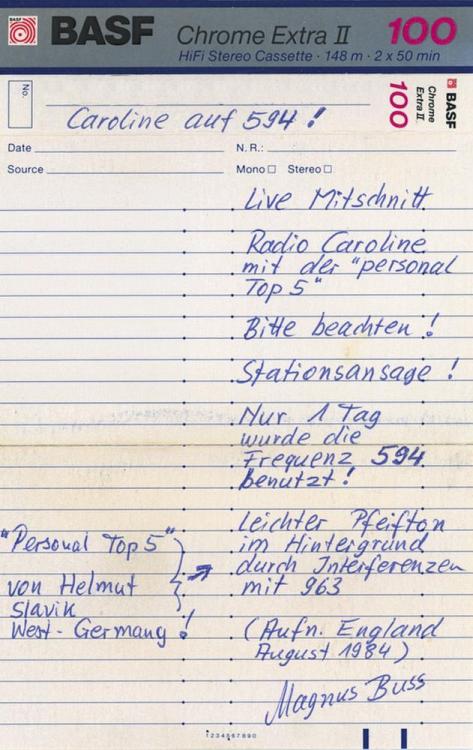 BASF Chrome Extra II 100
HiFi Stereo Cassette · 148 m · 2 x 50 min
No.
Caroline auf 594 !
BASF
Chrome
Extra II
100
Date N. R.:
Source Mono Stereo
Live Mitschnitt
Radio Caroline
mit der "personal
Top 5"
Bitte beachten !
Stationsansage !
Nur 1 Tag
wurde die
Frequenz 594
benutzt !
Leichter Pfeifton
im Hintergrund
durch Interferenzen
mit 963
"Personal Top 5"
von Helmut
Slavik
West-Germany !
(Aufn. England
August 1984)
Magnus Buss
1234567890